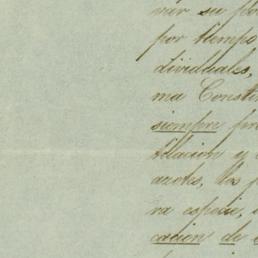 por tiempo
dividuales,
ma Consti
siempre pr
tilacion y
azotes, los
ra especie,
cacion de